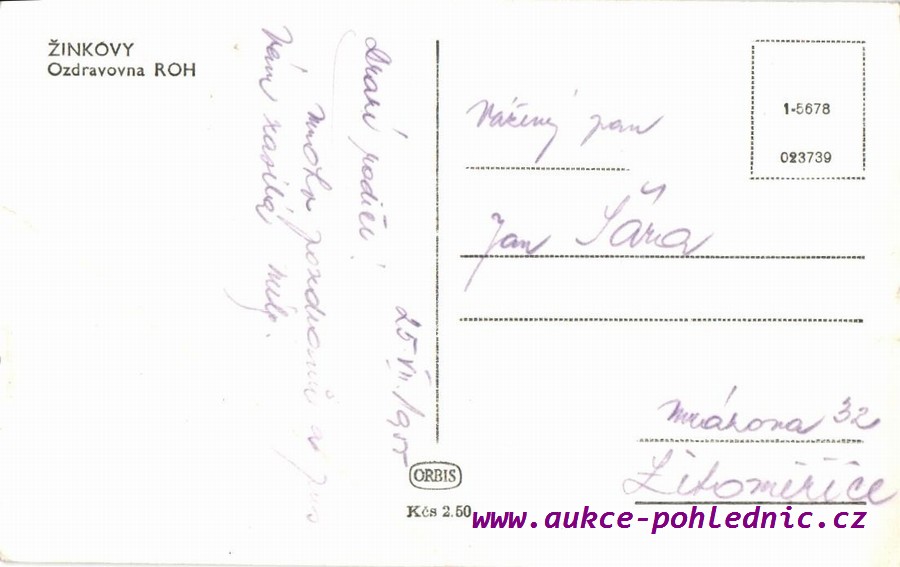 ŽINKOVY
Ozdravovna ROH
25. VII. 195
Drazí rodiče!
mnoho pozdravů
Vám zasílá
Vážený pan
Jan Šára
32
Litoměřice
1-5678
023739
ORBIS
Kčs 2.50
www.aukce-pohlednic.cz